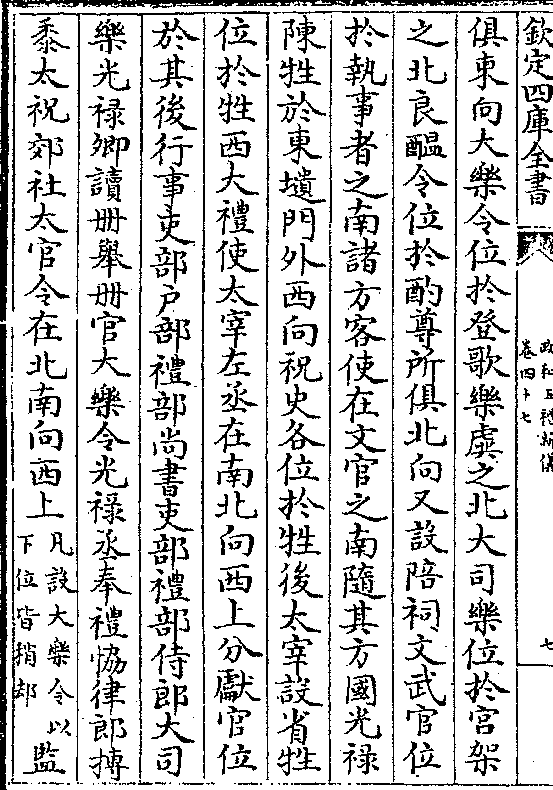 欽定四庫全書
政和五禮新儀
卷四十七
七
俱東向大樂令位於登歌樂虡之北大司樂位於宮架
之北良醞令位於酌尊所俱北向又設陪祠文武官位
於執事者之南諸方客使在文官之南隨其方國光祿
陳牲於東壝門外西向祝史各位於牲後太宰設省牲
位於牲西大禮使太宰左丞在南北向西上分獻官位
於其後行事吏部户部禮部尚書吏部禮部侍郎大司
樂光祿卿讀冊舉冊官大樂令光祿丞奉禮協律郎摶
黍太祝郊社太官令在北南向西上凡設大樂令以
下位皆稍却監